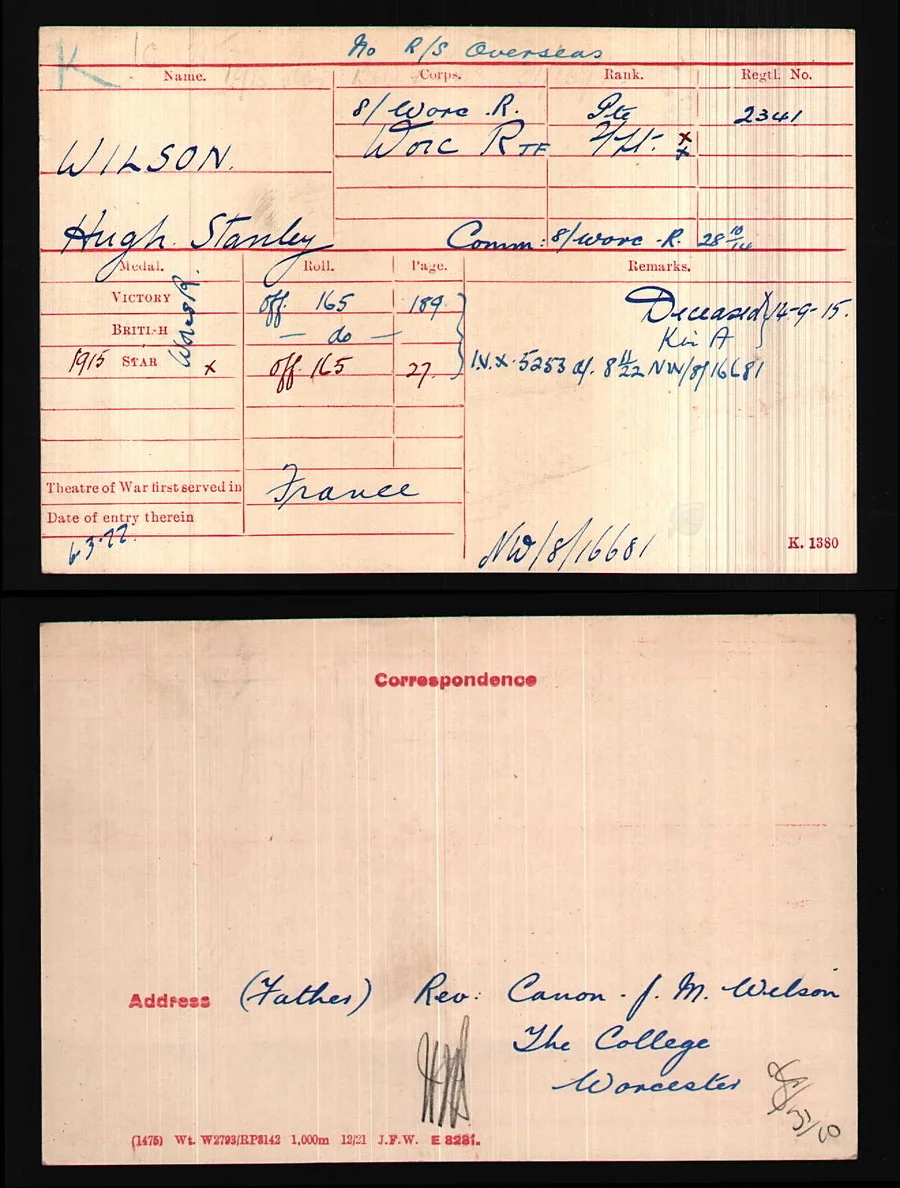 K
No R/S Overseas
Name. Corps. Rank. Regtl. No.
8/Worc .R. Pte 2341
WILSON. Worc R TF x
x
Hugh. Stanley Comm: 8/Worc .R. 28 10/14
Medal. Roll. Page. Remarks.
VICTORY Off. 165 189 Deceased 14-9-15.
BRITI-H Worc R. — do — Kin A
1915 STAR x Off. 165 27. I.V.X. 5253 d/. 8 11/22 NW/8/16681
Theatre of War first served in France
Date of entry therein
6.3.22. NW/8/16681 K. 1380
Correspondence
Address (Father) Rev: Canon. J. M. Wilson
The College
Worcester
(1475) Wt. W2793/RP3142 1,000m 12/21 J.F.W. E 8281.